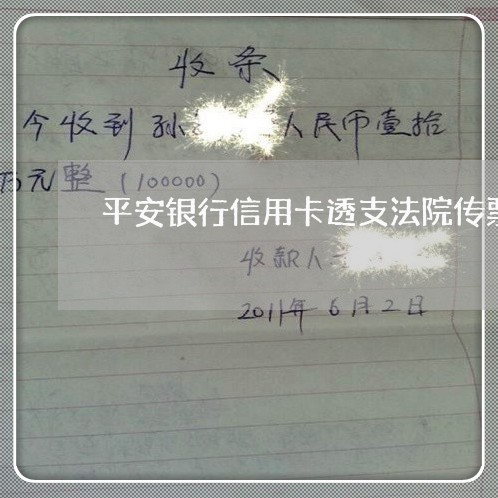 收条
今收到孙 人民币壹拾
万元整(100000)
平安银行信用卡透支法院传票
收款人
2011年6月2日